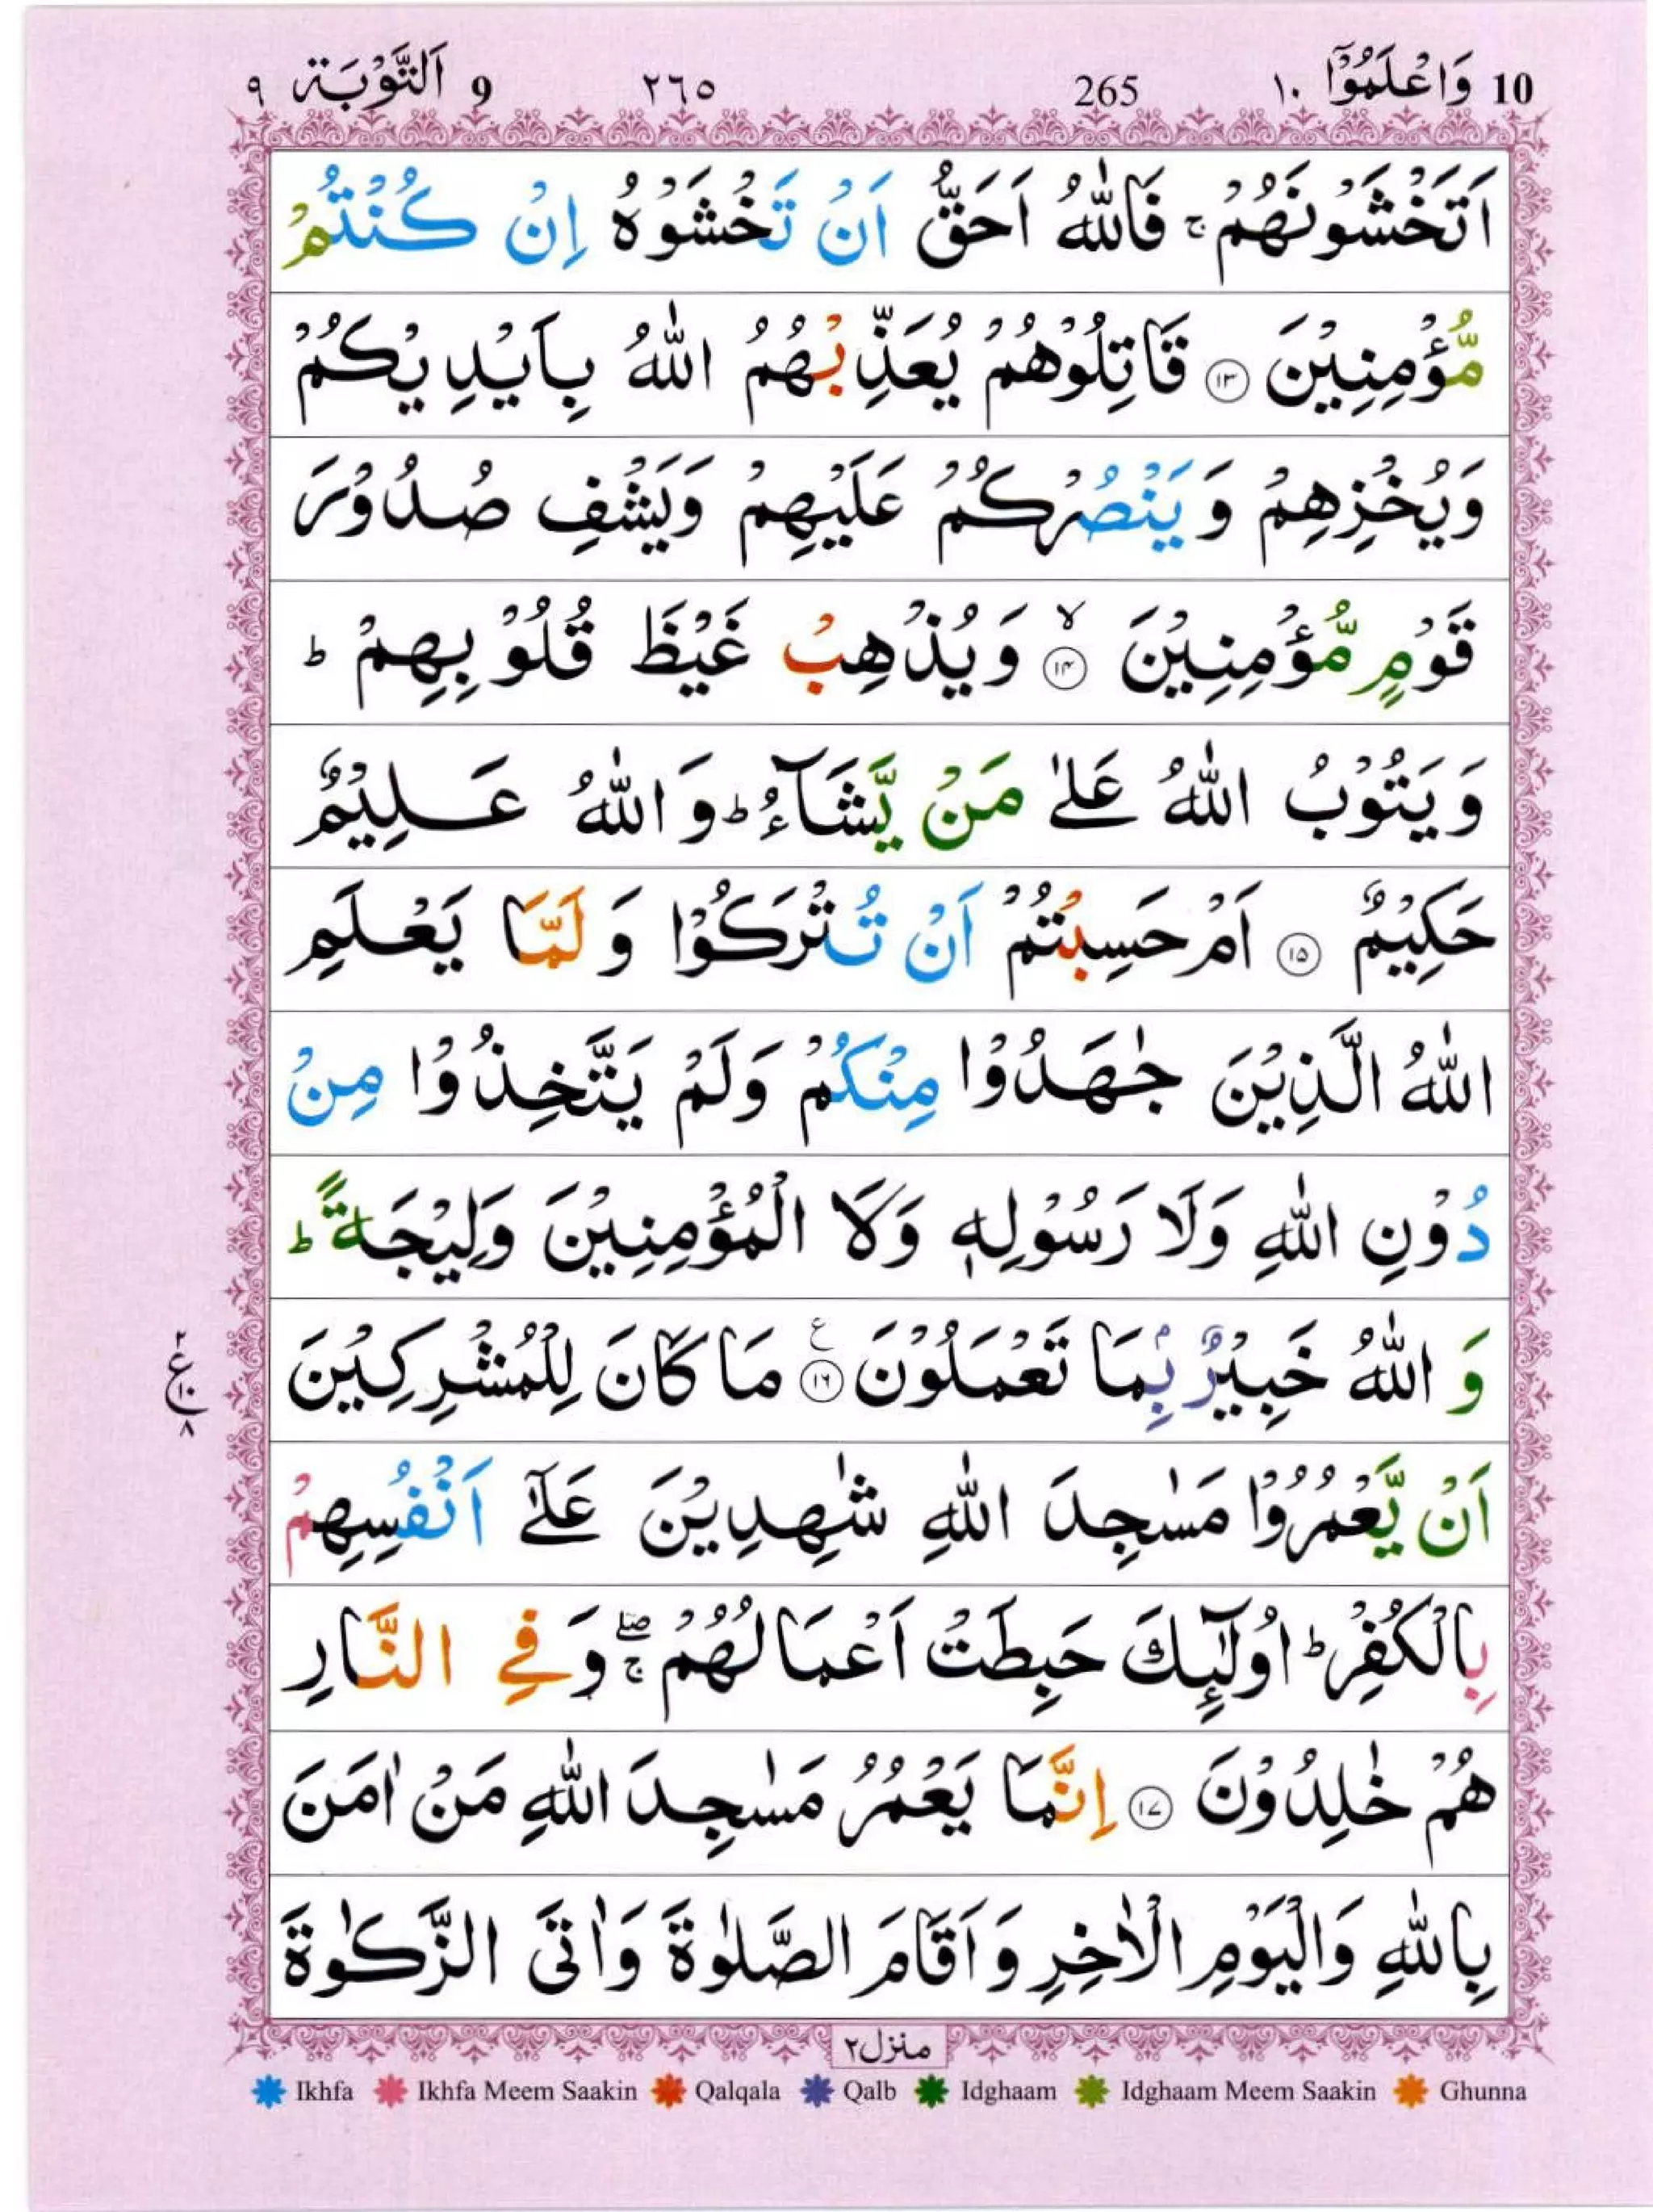 10 وَاعْلَمُوْۤا ١٠ 265 ٢٦٥ 9 اَلتَّوْبَة ٩
اَتَخْشَوْنَهُمْ ۚ فَاللّٰهُ اَحَقُّ اَنْ تَخْشَوْهُ اِنْ كُنْتُمْ
مُّؤْمِنِيْنَ ١٣ قَاتِلُوْهُمْ يُعَذِّبْهُمُ اللّٰهُ بِاَيْدِيْكُمْ
وَيُخْزِهِمْ وَيَنْصُرْكُمْ عَلَيْهِمْ وَيَشْفِ صُدُوْرَ
قَوْمٍ مُّؤْمِنِيْنَ ۙ ١٤ وَيُذْهِبْ غَيْظَ قُلُوْبِهِمْ ؕ
وَيَتُوْبُ اللّٰهُ عَلٰى مَنْ يَّشَآءُ ؕ وَاللّٰهُ عَلِيْمٌ
حَكِيْمٌ ١٥ اَمْ حَسِبْتُمْ اَنْ تُتْرَكُوْا وَلَمَّا يَعْلَمِ
اللّٰهُ الَّذِيْنَ جٰهَدُوْا مِنْكُمْ وَلَمْ يَتَّخِذُوْا مِنْ
دُوْنِ اللّٰهِ وَلَا رَسُوْلِهٖ وَلَا الْمُؤْمِنِيْنَ وَلِيْجَةً ؕ
وَاللّٰهُ خَبِيْرٌۢ بِمَا تَعْمَلُوْنَ ١٦ ع مَا كَانَ لِلْمُشْرِكِيْنَ
٢ ع ١٠ ٨
اَنْ يَّعْمُرُوْا مَسٰجِدَ اللّٰهِ شٰهِدِيْنَ عَلٰۤى اَنْفُسِهِمْ
بِالْكُفْرِ ؕ اُولٰٓئِكَ حَبِطَتْ اَعْمَالُهُمْ ۖۚ وَفِي النَّارِ
هُمْ خٰلِدُوْنَ ١٧ اِنَّمَا يَعْمُرُ مَسٰجِدَ اللّٰهِ مَنْ اٰمَنَ
بِاللّٰهِ وَالْيَوْمِ الْاٰخِرِ وَاَقَامَ الصَّلٰوةَ وَاٰتَى الزَّكٰوةَ
منزل ٢
Ikhfa Ikhfa Meem Saakin Qalqala Qalb Idghaam Idghaam Meem Saakin Ghunna